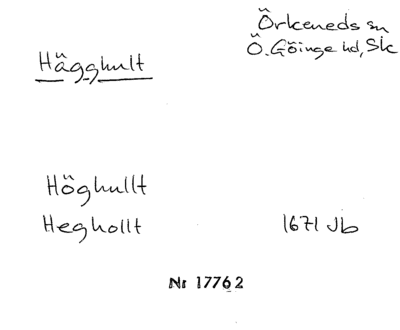 Hägghult
Örkeneds sn
Ö. Göinge hd, Sk
Höghullt
Heghollt 1671 Jb
Nr 17762